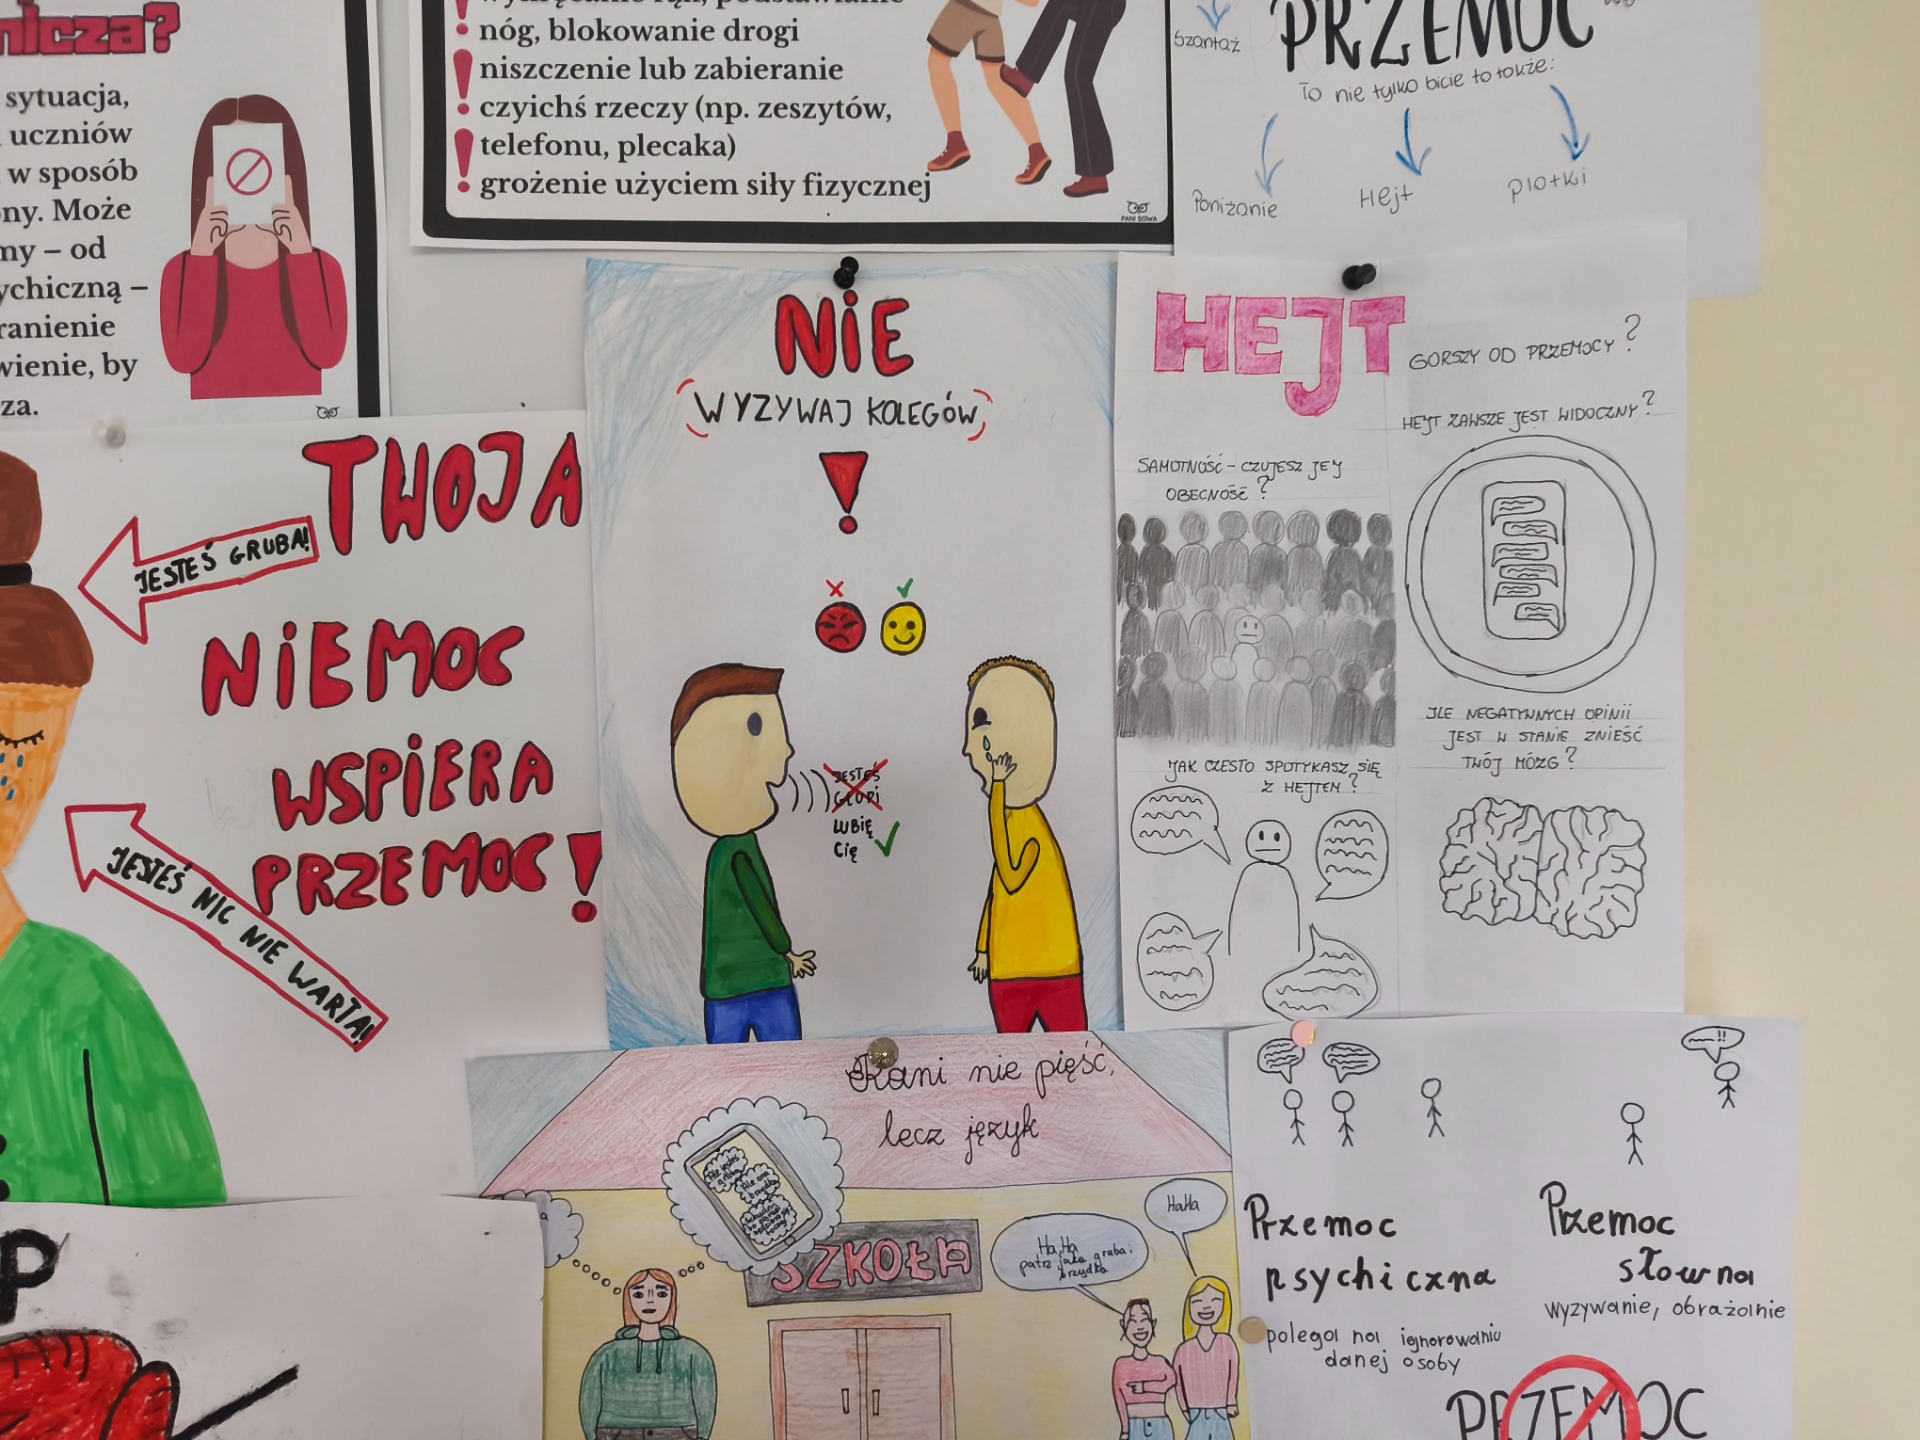 nicza?
sytuacja,
uczniów
w sposób
ny. Może
my – od
ychiczną –
ranienie
wienie, by
za.
nóg, blokowanie drogi
niszczenie lub zabieranie
czyichś rzeczy (np. zeszytów,
telefonu, plecaka)
grożenie użyciem siły fizycznej
PANI SOWA
Szantaż
PRZEMOC
To nie tylko bicie to także:
Poniżanie
Hejt
plotki
TWOJA
NIEMOC
WSPIERA
PRZEMOC!
JESTEŚ GRUBA!
JESTEŚ NIC NIE WARTA!
NiE
WYZYWAJ KOLEGÓW
!
JESTEŚ
GŁUPI
LUBIĘ
Cię
HEJT
GORSZY OD PRZEMOCY?
HEJT ZAWSZE JEST WIDOCZNY?
SAMOTNOŚĆ – CZUJESZ JEJ
OBECNOŚĆ?
JAK CZĘSTO SPOTYKASZ SIĘ
Z HEJTEM?
ILE NEGATYWNYCH OPINII
JEST W STANIE ZNIEŚĆ
TWÓJ MÓZG?
Rani nie pięść,
lecz język
SZKOŁA
Ha,Ha
patrz jaka gruba i
brzydka
HaHa
!!
Przemoc
psychiczna
polega na ignorowaniu
danej osoby
Przemoc
słowna
wyzywanie, obrażanie
PRZEMOC
P